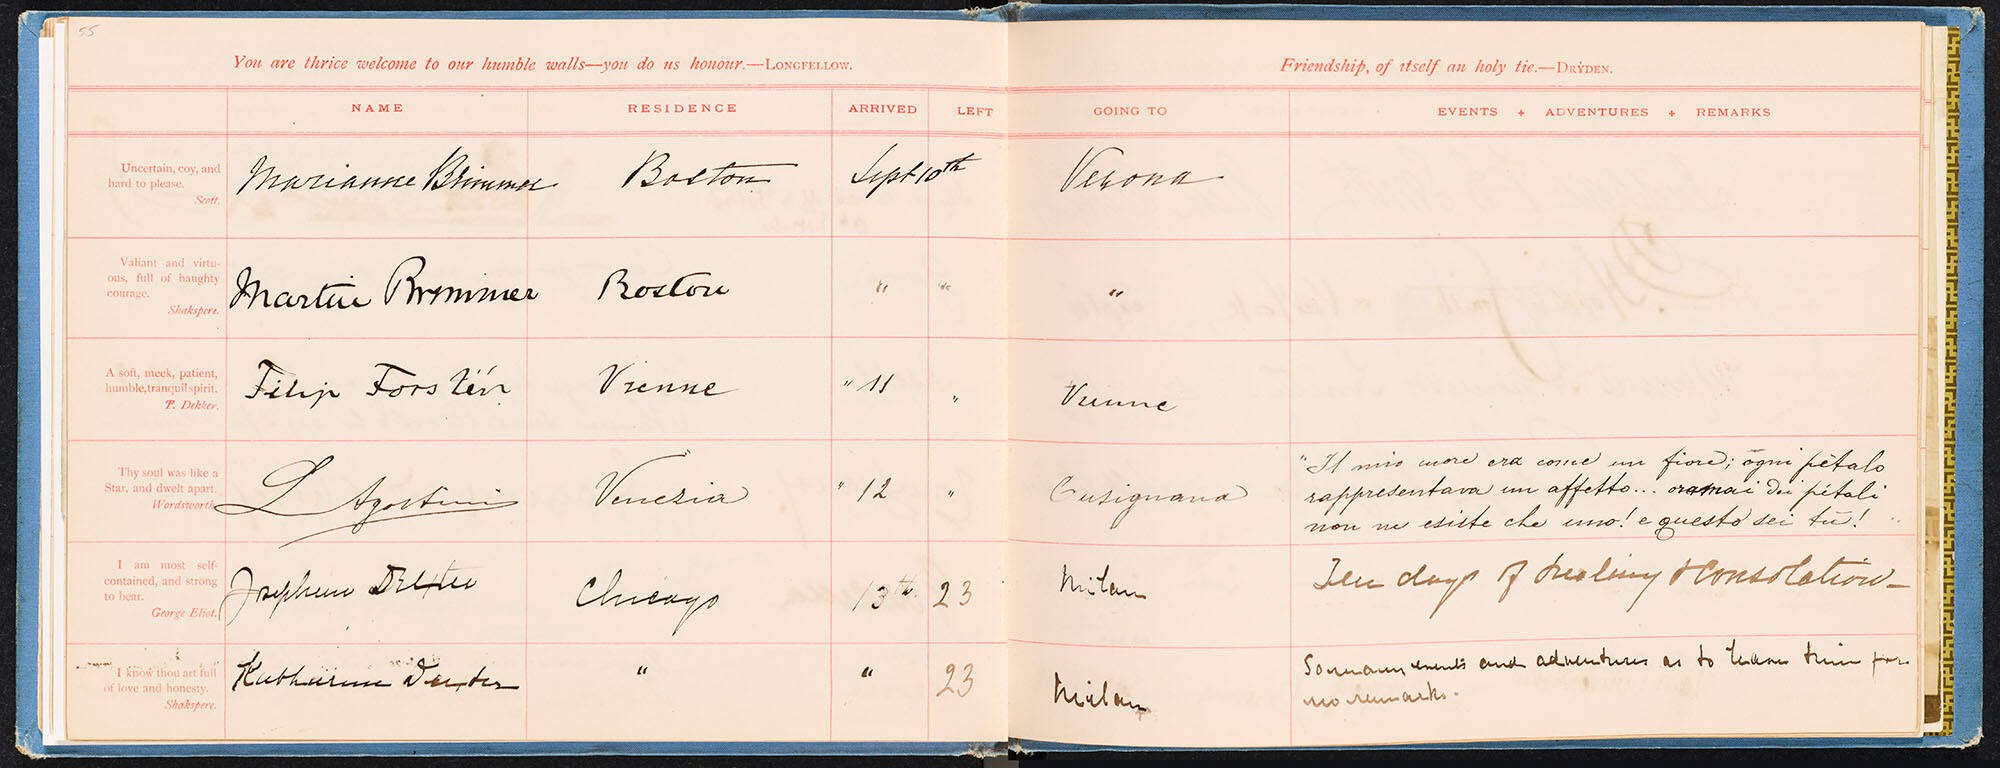 55
You are thrice welcome to our humble walls—you do us honour.—LONGFELLOW.
Friendship, of itself an holy tie.—DRYDEN.
NAME RESIDENCE ARRIVED LEFT GOING TO EVENTS + ADVENTURES + REMARKS
Uncertain, coy, and
hard to please.
Scott.
Marianne Brimmer Boston Sept 10th Verona
Valiant and virtu-
ous, full of haughty
courage.
Shakspere.
Martin Brimmer Boston " " "
A soft, meek, patient,
humble, tranquil spirit.
T. Dekker.
Filip Forstén Vienne " 11 " Vienne
Thy soul was like a
Star, and dwelt apart.
Wordsworth.
L Agostini Venezia " 12 " Cusignana
"Il mio cuore era come un fiore; ogni pétalo
rappresentava un affetto... oramai dei pétali
non ne esiste che uno! e questo sei tù!"
I am most self-
contained, and strong
to bear.
George Eliot.
Josephine Dexter Chicago 13th. 23 Milan
Ten days of healing & consolation—
I know thou art full
of love and honesty.
Shakspere.
Katharine Dexter " " 23 Milan
So many events and adventures as to leave time for
no remarks.